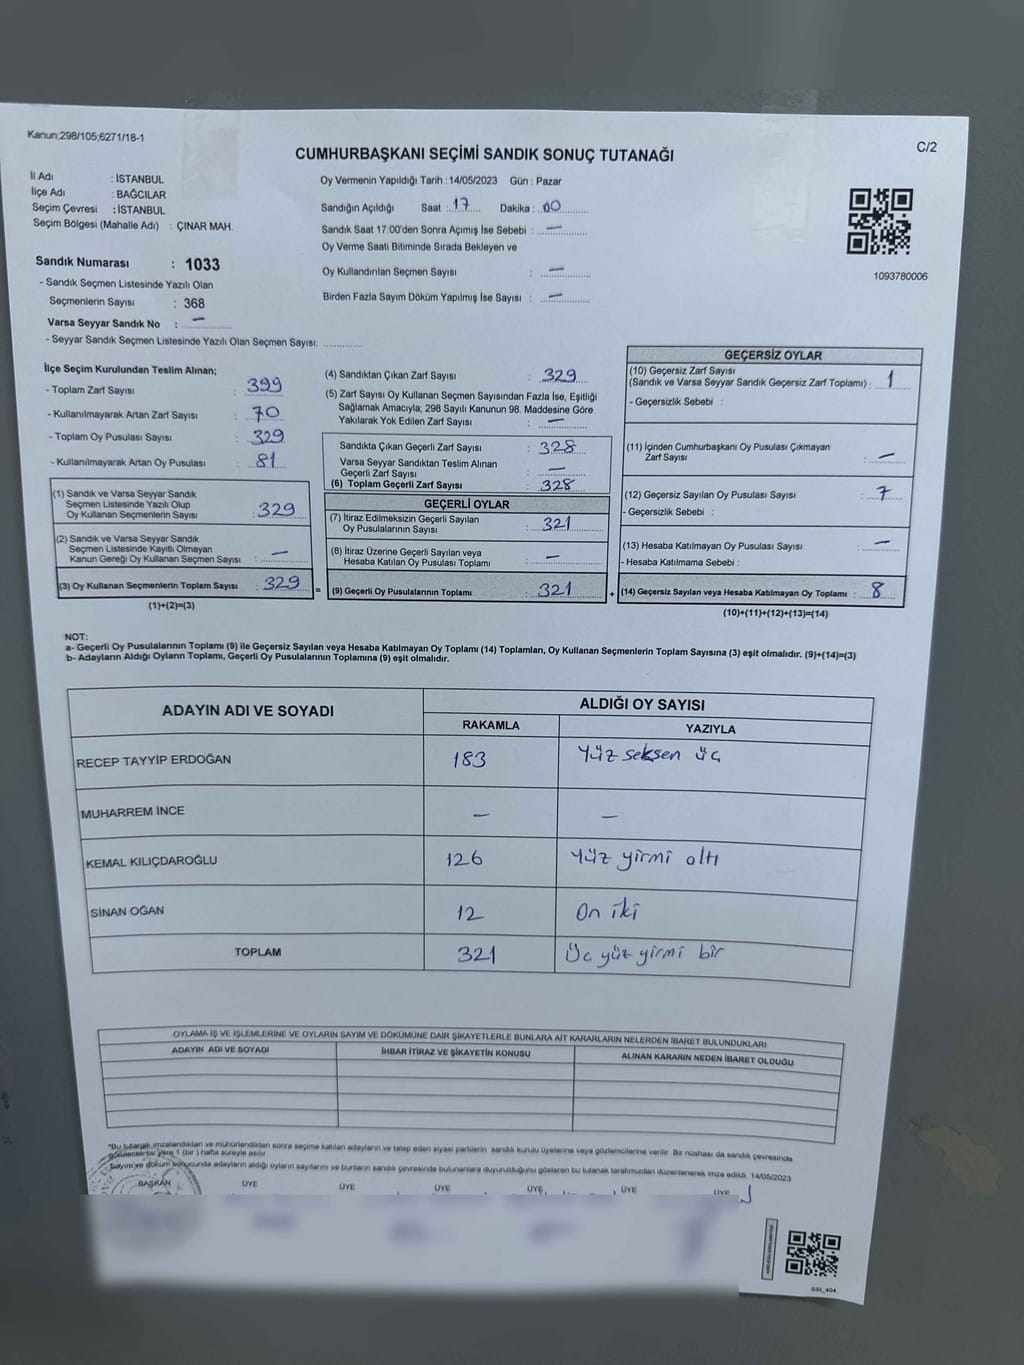 Kanun;298/105;6271/18-1
C/2
CUMHURBAŞKANI SEÇİMİ SANDIK SONUÇ TUTANAĞI
İl Adı : İSTANBUL
İlçe Adı : BAĞCILAR
Seçim Çevresi : İSTANBUL
Seçim Bölgesi (Mahalle Adı) : ÇINAR MAH.
Oy Vermenin Yapıldığı Tarih : 14/05/2023 Gün : Pazar
Sandığın Açıldığı Saat : 17 Dakika : 00
Sandık Saat 17:00'den Sonra Açımış İse Sebebi : —
Oy Verme Saati Bitiminde Sırada Bekleyen ve
Oy Kullandırılan Seçmen Sayısı : —
Birden Fazla Sayım Döküm Yapılmış İse Sayısı : —
1093780006
Sandık Numarası : 1033
- Sandık Seçmen Listesinde Yazılı Olan
Seçmenlerin Sayısı : 368
Varsa Seyyar Sandık No : —
- Seyyar Sandık Seçmen Listesinde Yazılı Olan Seçmen Sayısı:
İlçe Seçim Kurulundan Teslim Alınan;
- Toplam Zarf Sayısı : 399
- Kullanılmayarak Artan Zarf Sayısı : 70
- Toplam Oy Pusulası Sayısı : 329
- Kullanılmayarak Artan Oy Pusulası : 81
(1) Sandık ve Varsa Seyyar Sandık
Seçmen Listesinde Yazılı Olup
Oy Kullanan Seçmenlerin Sayısı : 329
(2) Sandık ve Varsa Seyyar Sandık
Seçmen Listesinde Kayıtlı Olmayan
Kanun Gereği Oy Kullanan Seçmen Sayısı : —
(3) Oy Kullanan Seçmenlerin Toplam Sayısı : 329
(1)+(2)=(3)
(4) Sandıktan Çıkan Zarf Sayısı : 329
(5) Zarf Sayısı Oy Kullanan Seçmen Sayısından Fazla İse, Eşitliği
Sağlamak Amacıyla; 298 Sayılı Kanunun 98. Maddesine Göre
Yakılarak Yok Edilen Zarf Sayısı : —
Sandıkta Çıkan Geçerli Zarf Sayısı : 328
Varsa Seyyar Sandıktan Teslim Alınan
Geçerli Zarf Sayısı : —
(6) Toplam Geçerli Zarf Sayısı : 328
GEÇERLİ OYLAR
(7) İtiraz Edilmeksizin Geçerli Sayılan
Oy Pusulalarının Sayısı : 321
(8) İtiraz Üzerine Geçerli Sayılan veya
Hesaba Katılan Oy Pusulası Toplamı : —
= (9) Geçerli Oy Pusulalarının Toplamı : 321
GEÇERSİZ OYLAR
(10) Geçersiz Zarf Sayısı
(Sandık ve Varsa Seyyar Sandık Geçersiz Zarf Toplamı) : 1
- Geçersizlik Sebebi :
(11) İçinden Cumhurbaşkanı Oy Pusulası Çıkmayan
Zarf Sayısı : —
(12) Geçersiz Sayılan Oy Pusulası Sayısı : 7
- Geçersizlik Sebebi :
(13) Hesaba Katılmayan Oy Pusulası Sayısı : —
- Hesaba Katılmama Sebebi :
+ (14) Geçersiz Sayılan veya Hesaba Katılmayan Oy Toplamı : 8
(10)+(11)+(12)+(13)=(14)
NOT:
a- Geçerli Oy Pusulalarının Toplamı (9) ile Geçersiz Sayılan veya Hesaba Katılmayan Oy Toplamı (14) Toplamları, Oy Kullanan Seçmenlerin Toplam Sayısına (3) eşit olmalıdır. (9)+(14)=(3)
b- Adayların Aldığı Oyların Toplamı, Geçerli Oy Pusulalarının Toplamına (9) eşit olmalıdır.
ADAYIN ADI VE SOYADI
ALDIĞI OY SAYISI
RAKAMLA YAZIYLA
RECEP TAYYİP ERDOĞAN 183 Yüz seksen üç
MUHARREM İNCE — —
KEMAL KILIÇDAROĞLU 126 Yüz yirmi altı
SİNAN OĞAN 12 On iki
TOPLAM 321 Üç yüz yirmi bir
OYLAMA İŞ VE İŞLEMLERİNE VE OYLARIN SAYIM VE DÖKÜMÜNE DAİR ŞİKAYETLERLE BUNLARA AİT KARARLARIN NELERDEN İBARET BULUNDUKLARI
ADAYIN ADI VE SOYADI İHBAR İTİRAZ VE ŞİKAYETİN KONUSU ALINAN KARARIN NEDEN İBARET OLDUĞU
*Bu tutanak imzalandıktan ve mühürlendikten sonra seçime katılan adayların ve talep eden siyasi partilerin sandık kurulu üyelerine veya gözlemcilerine verilir. Bir nüshası da sandık çevresinde
görülecek bir yere 1 (bir) hafta süreyle asılır.
Sayım ve döküm sonucunda adayların aldığı oyların sayılarını ve bunların sandık çevresinde bulunanlara duyurulduğunu gösteren bu tutanak tarafımızdan düzenlenerek imza edildi. 14/05/2023
BAŞKAN ÜYE ÜYE ÜYE ÜYE ÜYE ÜYE